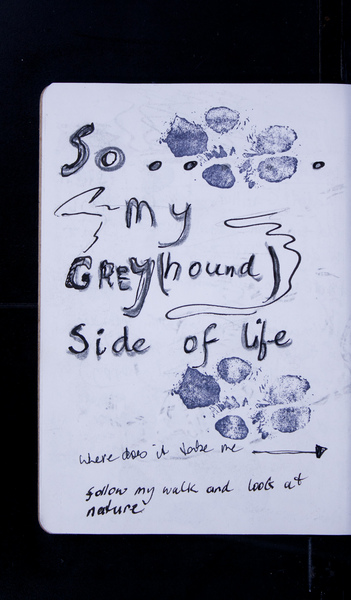 So . . .
my
GREY(hound)
Side of life
where does it take me
follow my walk and look at
nature